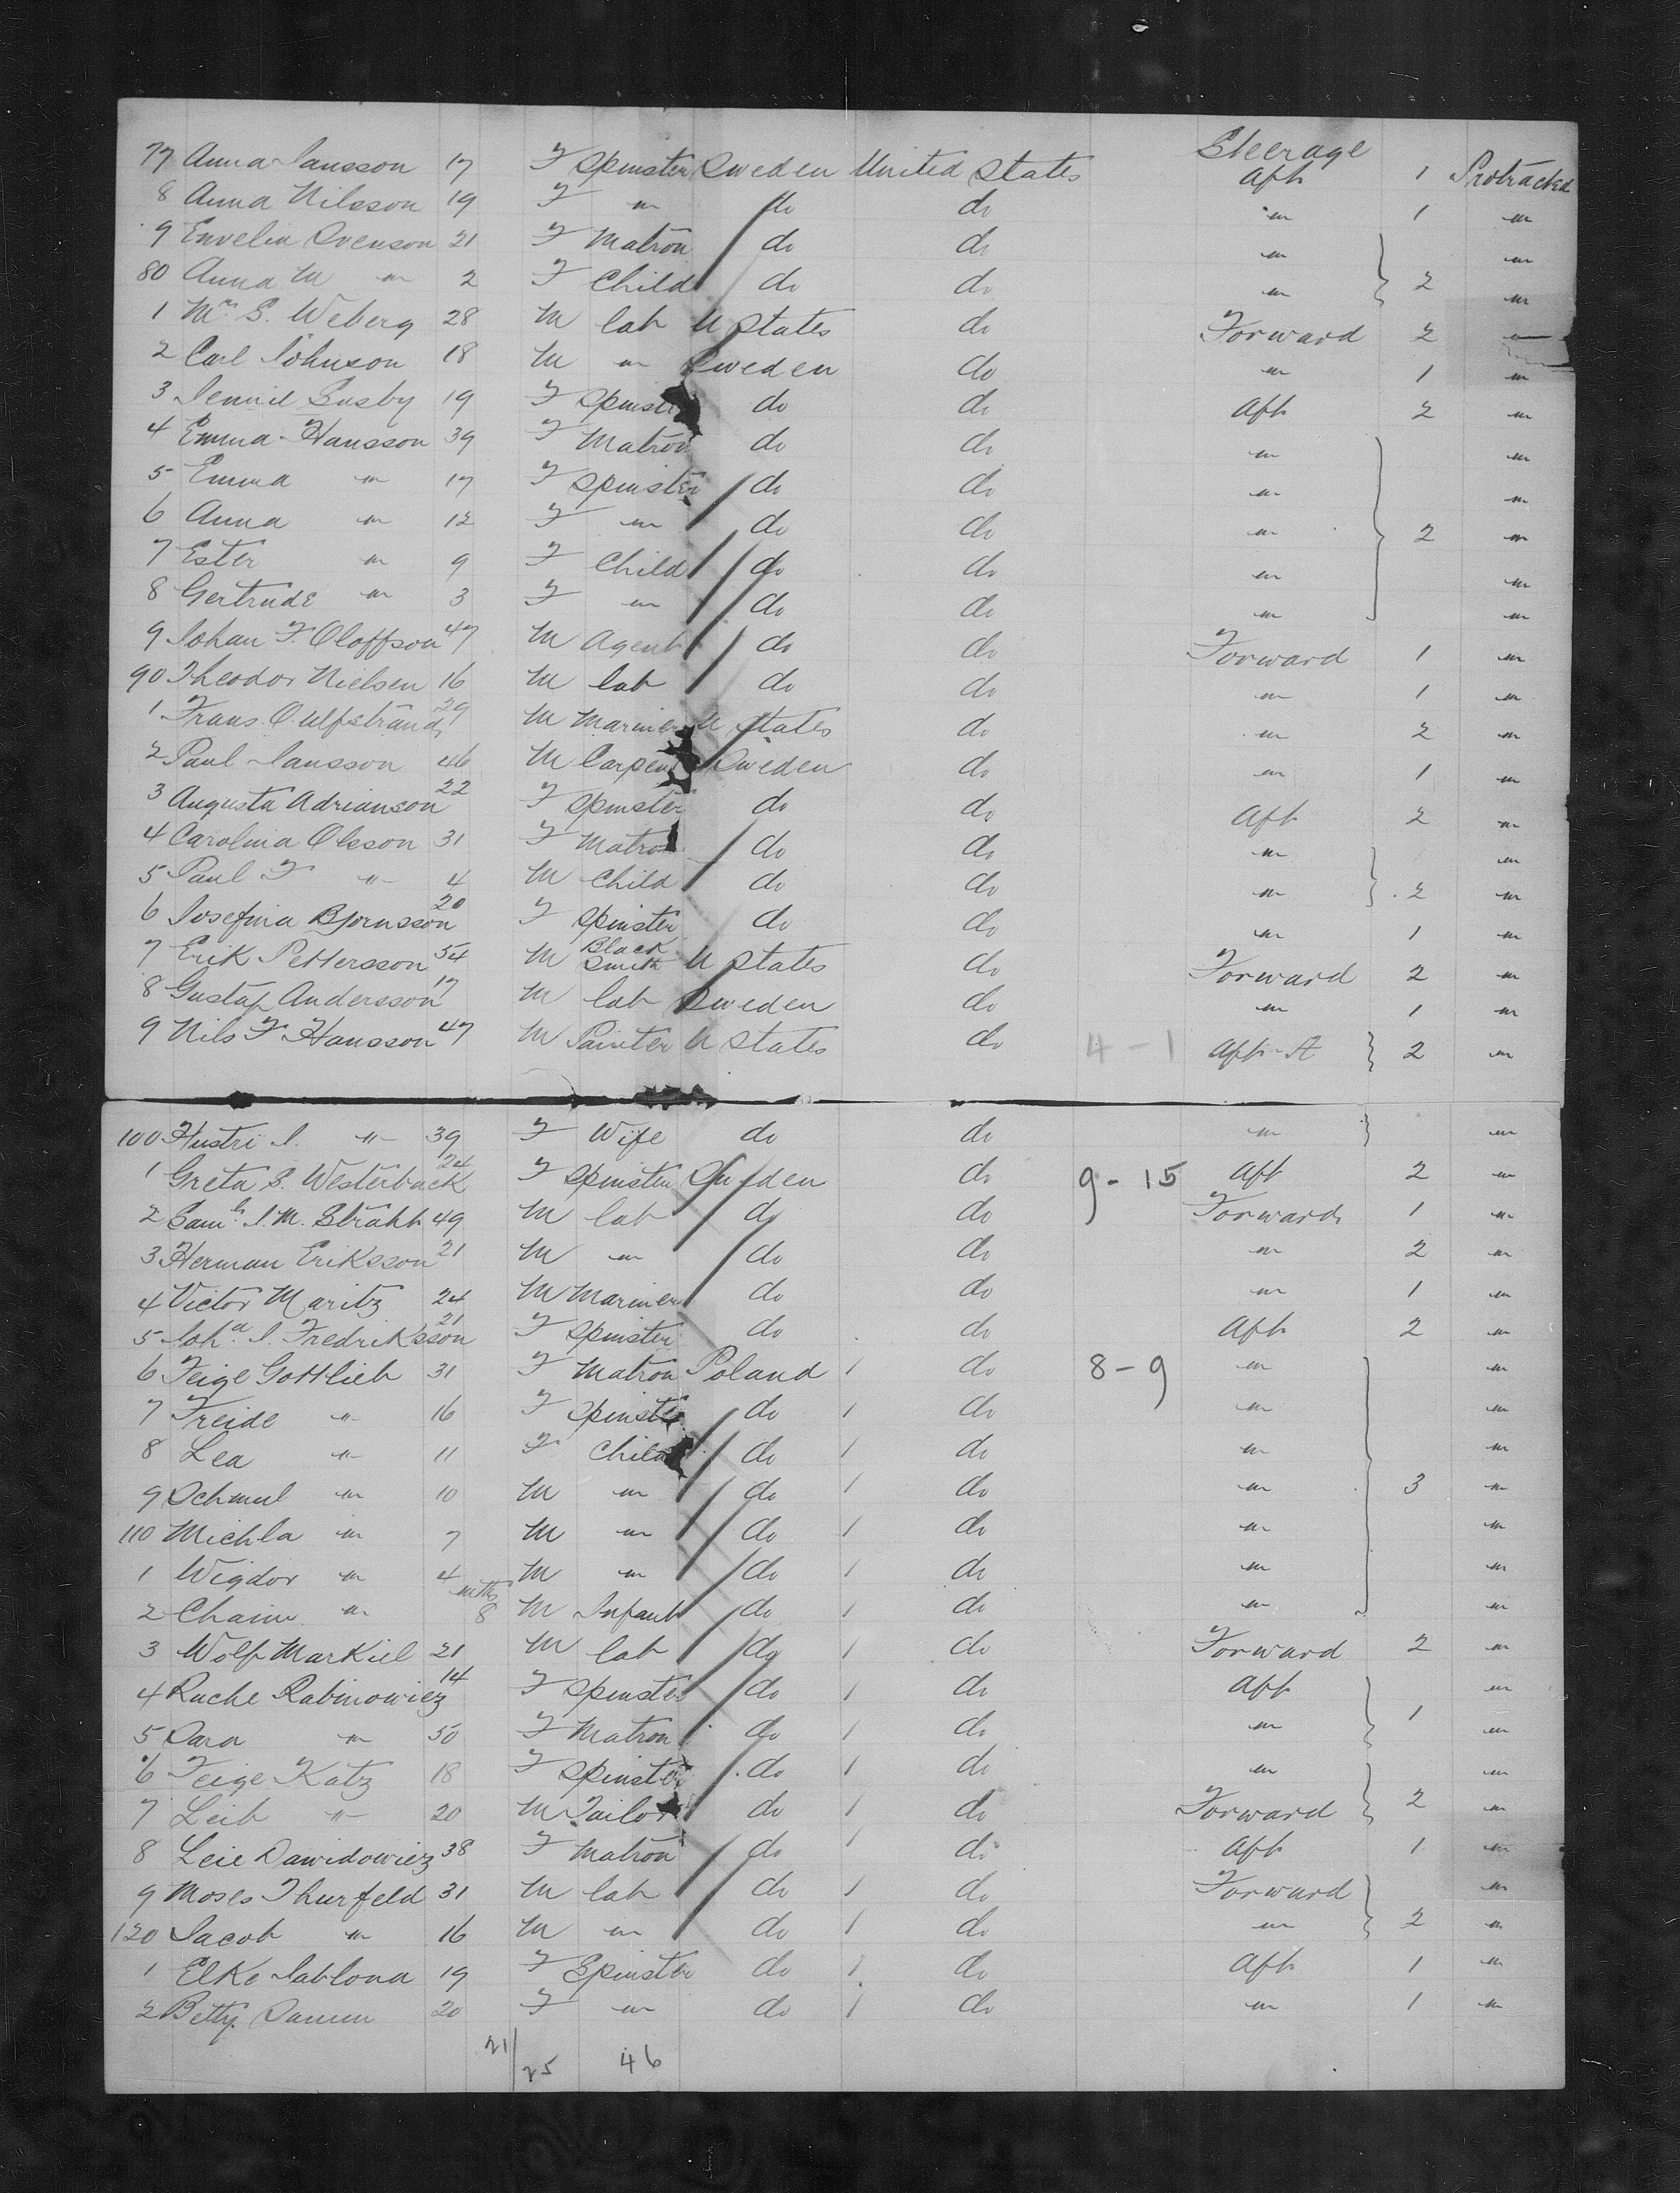 Steerage
77 Anna Jansson 17 F Spinster Sweden United States Aft 1 Protracted
8 Anna Nilsson 19 F " do do " 1 "
9 Envelin Svenson 21 F Matron do do " "
80 Anna M " 2 F Child do do " 2 "
1 Mr S. Weberg 28 M lab U States do Forward 2 "
2 Carl Johnson 18 M " Sweden do " 1 "
3 Jennie Busby 19 F Spinster do do Aft 2 "
4 Emma Hansson 39 F Matron do do " "
5 Emma " 17 F Spinster do do " "
6 Anna " 12 F " do do " 2 "
7 Ester " 9 F Child do do " "
8 Gertrude " 3 F " do do " "
9 Johan F. Oloffson 47 M Agent do do Forward 1 "
90 Theodor Nielsen 16 M lab do do " 1 "
1 Frans O. Ulfstrand 29 M Mariner U States do " 2 "
2 Paul Jansson 46 M Carpen Sweden do " 1 "
3 Augusta Adrianson 22 F Spinster do do Aft 2 "
4 Carolina Olsson 31 F Matron do do " "
5 Paul F " 4 M Child do do " 2 "
6 Josefina Bjornsson 20 F Spinster do do " 1 "
7 Erik Pettersson 54 M Black Smith U States do Forward 2 "
8 Gustaf Andersson 17 M lab Sweden do " 1 "
9 Nils F. Hansson 47 M Painter U States do 4-1 Aft-A 2 "
100 Hustri J. " 39 F Wife do do " "
1 Greta S. Westerback 24 F Spinster Sweden do 9-15 Aft 2 "
2 Saml J. M. Strahh 49 M lab do do Forward 1 "
3 Herman Eriksson 21 M " do do " 2 "
4 Victor Maritz 24 M Mariner do do " 1 "
5 Joha J. Fredriksson 21 F Spinster do do Aft 2 "
6 Feige Gottlieb 31 F Matron Poland 1 do 8-9 " "
7 Freide " 16 F Spinster do 1 do " "
8 Lea " 11 F Child do 1 do " "
9 Schmul " 10 M " do 1 do " 3 "
110 Michla " 7 M " do 1 do " "
1 Wigdor " 4 M " do 1 do " "
2 Chaim " mths 8 M Infant do 1 do " "
3 Wolf Markiel 21 M lab do 1 do Forward 2 "
4 Ruche Rabinowiez 14 F Spinster do 1 do Aft "
5 Sara " 50 F Matron do 1 do " 1 "
6 Feige Katz 18 F Spinster do 1 do " "
7 Leib " 20 M Tailor do 1 do Forward 2 "
8 Leie Dawidowiez 38 F Matron do 1 do Aft 1 "
9 Moses Thurfeld 31 M lab do 1 do Forward "
120 Jacob " 16 M " do 1 do " 2 "
1 Elke Jablona 19 F Spinster do 1 do Aft 1 "
2 Betty 20 F " do 1 do " 1 "
21/25 46